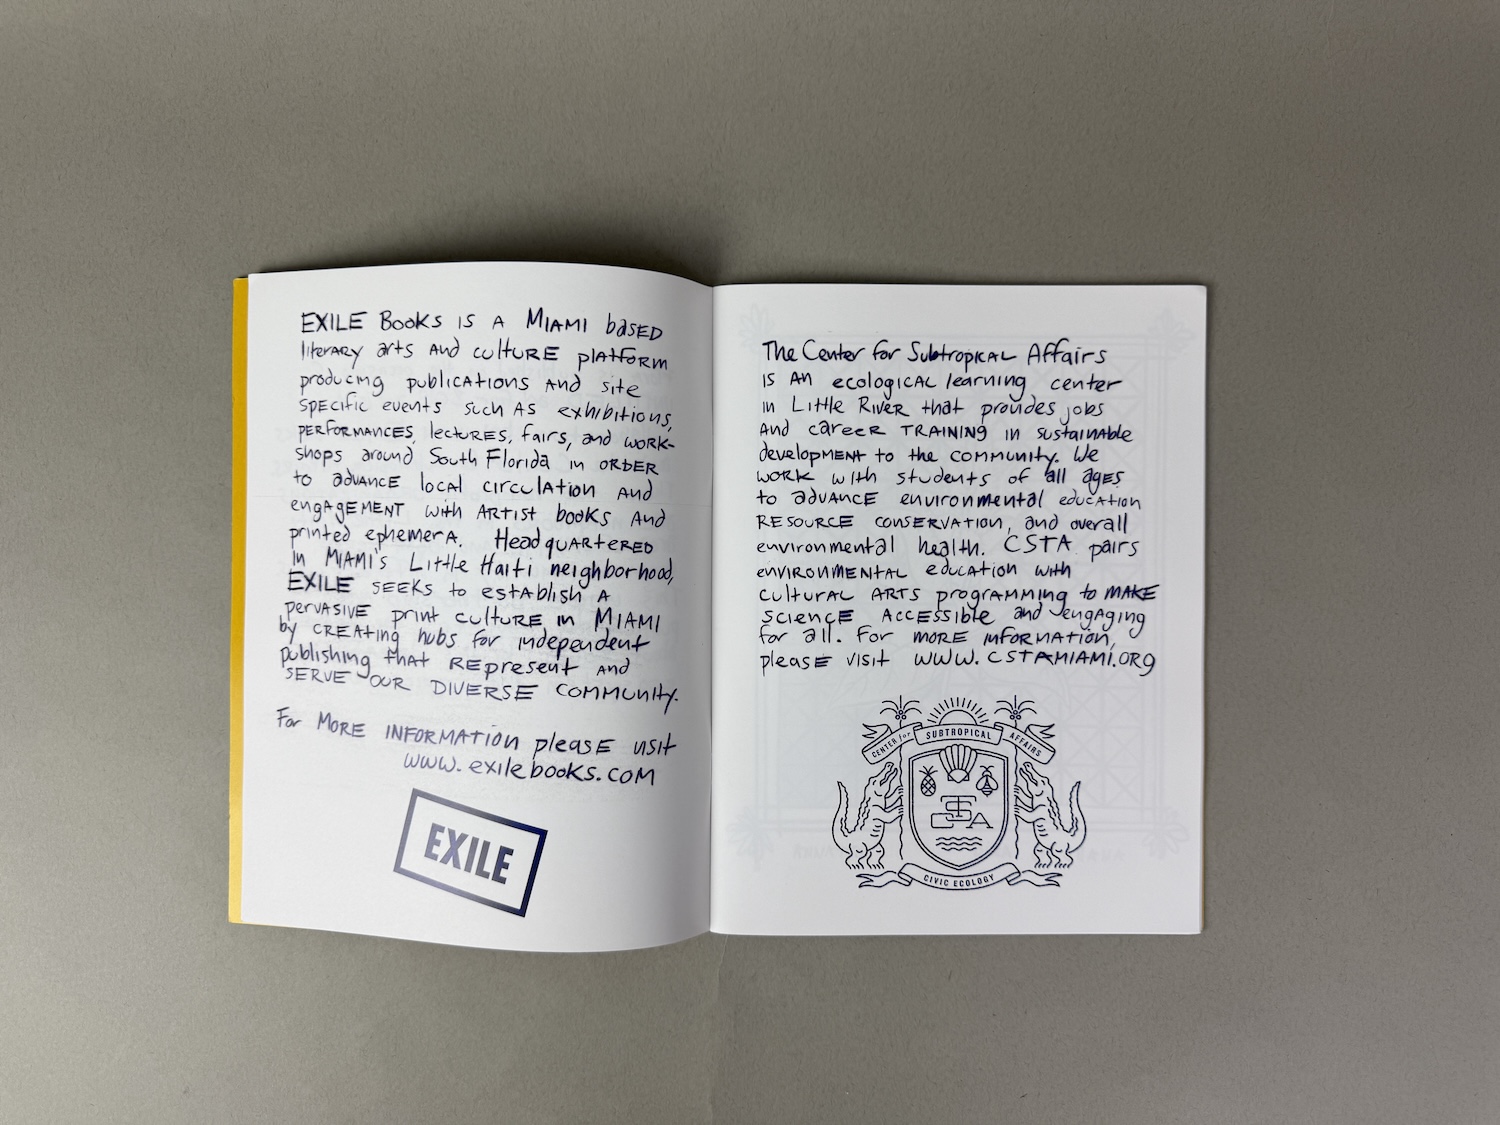 EXILE Books is a Miami based
literary arts and culture platform
producing publications and site
specific events such as exhibitions,
performances, lectures, fairs, and work-
shops around South Florida in order
to advance local circulation and
engagement with artist books and
printed ephemera. Headquartered
in Miami's Little Haiti neighborhood,
EXILE seeks to establish a
pervasive print culture in Miami
by creating hubs for independent
publishing that represent and
serve our diverse community.
For more information please visit
www.exilebooks.com
EXILE
The Center for Subtropical Affairs
is an ecological learning center
in Little River that provides jobs
and career training in sustainable
development to the community. We
work with students of all ages
to advance environmental education
resource conservation, and overall
environmental health. CSTA pairs
environmental education with
cultural arts programming to make
science accessible and engaging
for all. For more information,
please visit www.cstamiami.org
CENTER for SUBTROPICAL AFFAIRS
CSTA
CIVIC ECOLOGY